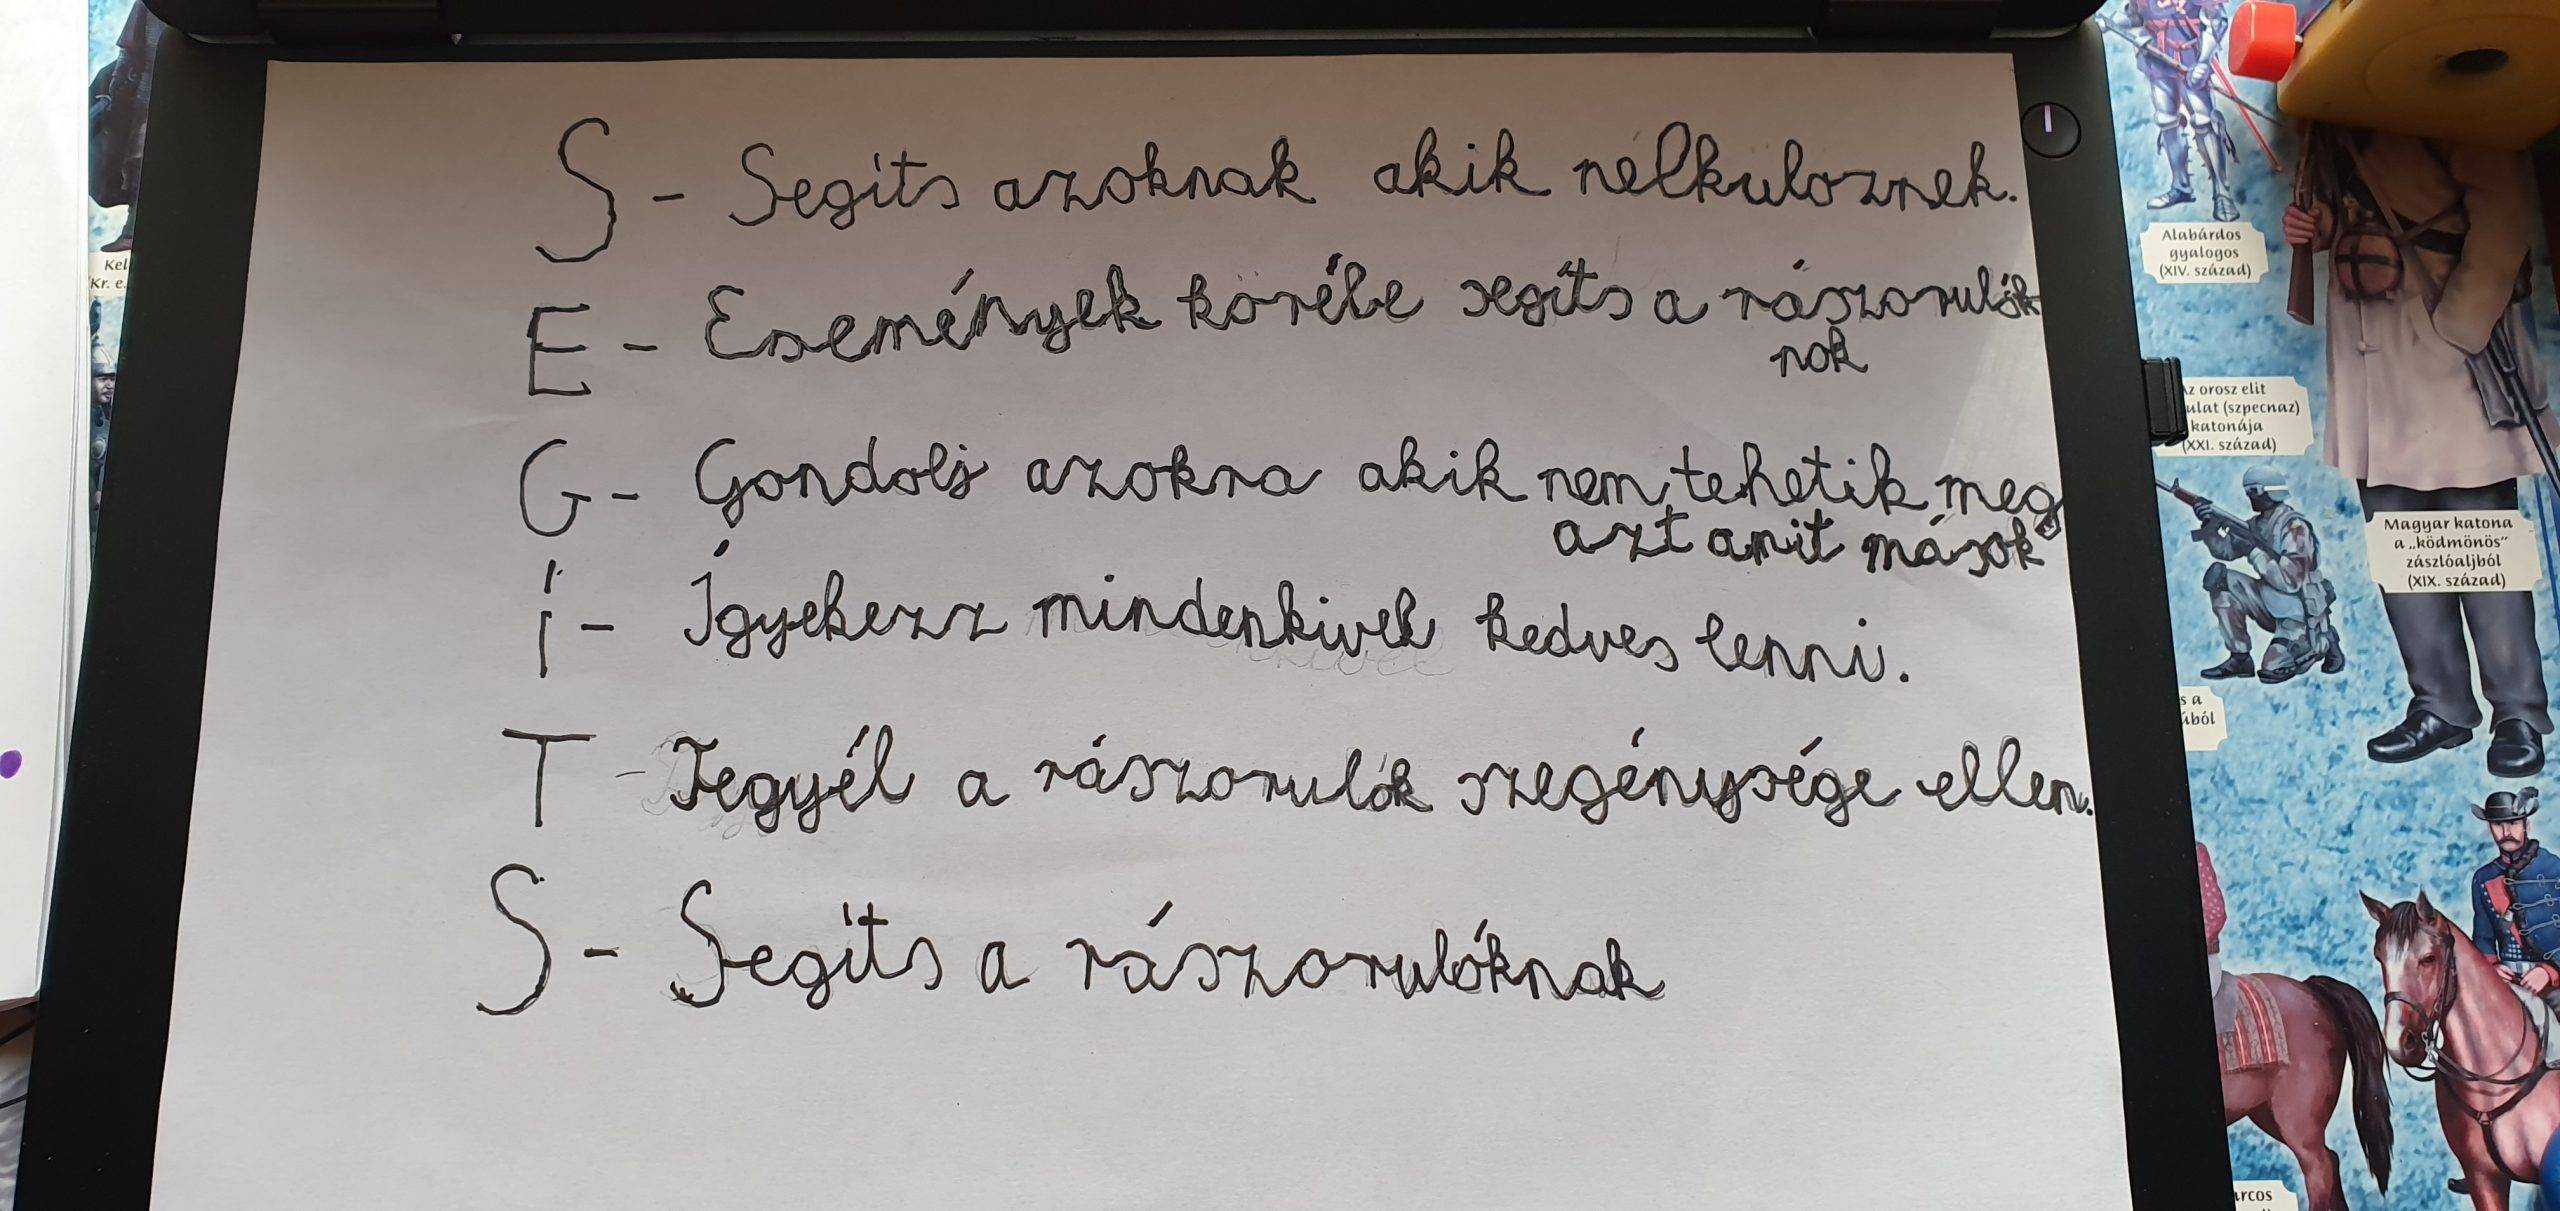 S - Segíts azoknak akik nélkulöznek.
E - Események köréle segíts a rászorulók
nok
G - Gondolj azokra akik nem tehetik meg
azt amit mások
Í - Ígyekezz mindenkivel kedves lenni.
T - Tegyél a rászorulók szegénysége ellen.
S - Segíts a rászorulóknak
Alabárdos
gyalogos
(XIV. század)
Az orosz elit
katonája
(XXI. század)
Magyar katona
a „ködmönös”
zászlóaljból
(XIX. század)
Kel
Kr. e.